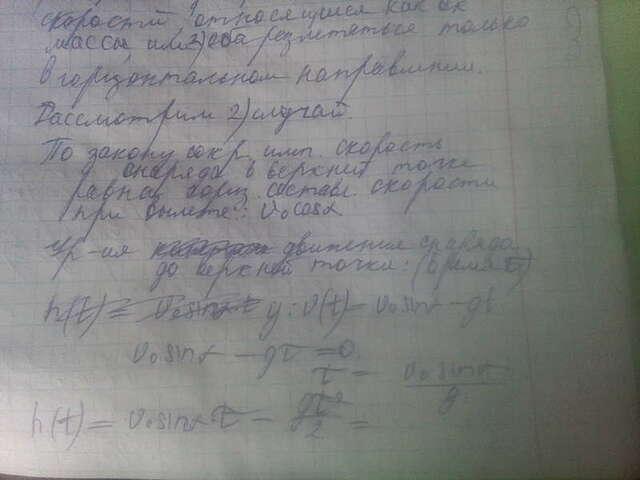 скоростей относящиеся как их
массы или 3) оба разлетяться только
в горизонтальном направлении.
Рассмотрим 2) случай.
По закону сохр. имп. скорость
снаряда в верхней точке
равна гориз. состав. скорости
при вылете: v₀cosα
Ур-ия движения снаряда
до верхней точки: (время τ)
h(t) = y: v(t) = v₀sinα - gt
v₀sinα - gτ = 0
τ = v₀sinα/g
h(t) = v₀sinα·t - gt²/2 =